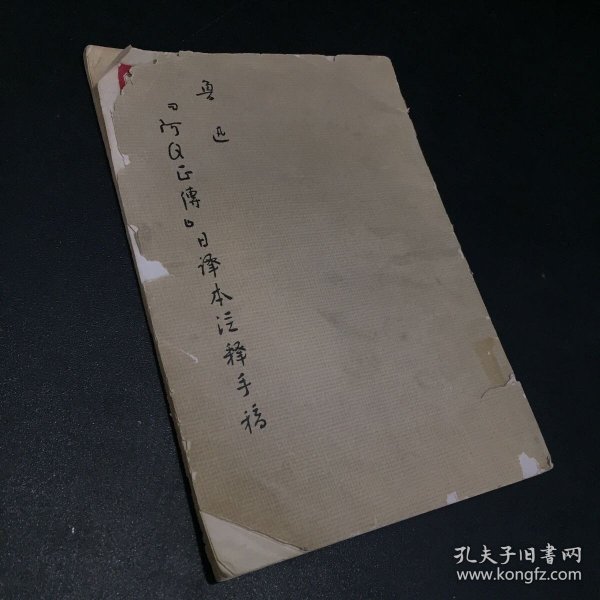 鲁迅
『阿Q正傳』日译本注释手稿
孔夫子旧書网
www.kongfz.com